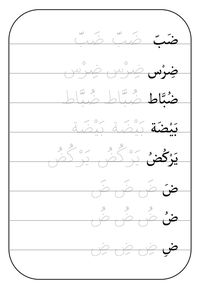 ضَبّ ضَبّ ضَبّ
ضِرْس ضِرْس ضِرْس
ضُبَّاط ضُبَّاط ضُبَّاط
بَيْضَة بَيْضَة بَيْضَة
يَرْكُضُ يَرْكُضُ يَرْكُضُ
ضَ ضَ ضَ ضَ
ضُ ضُ ضُ ضُ
ضِ ضِ ضِ ضِ